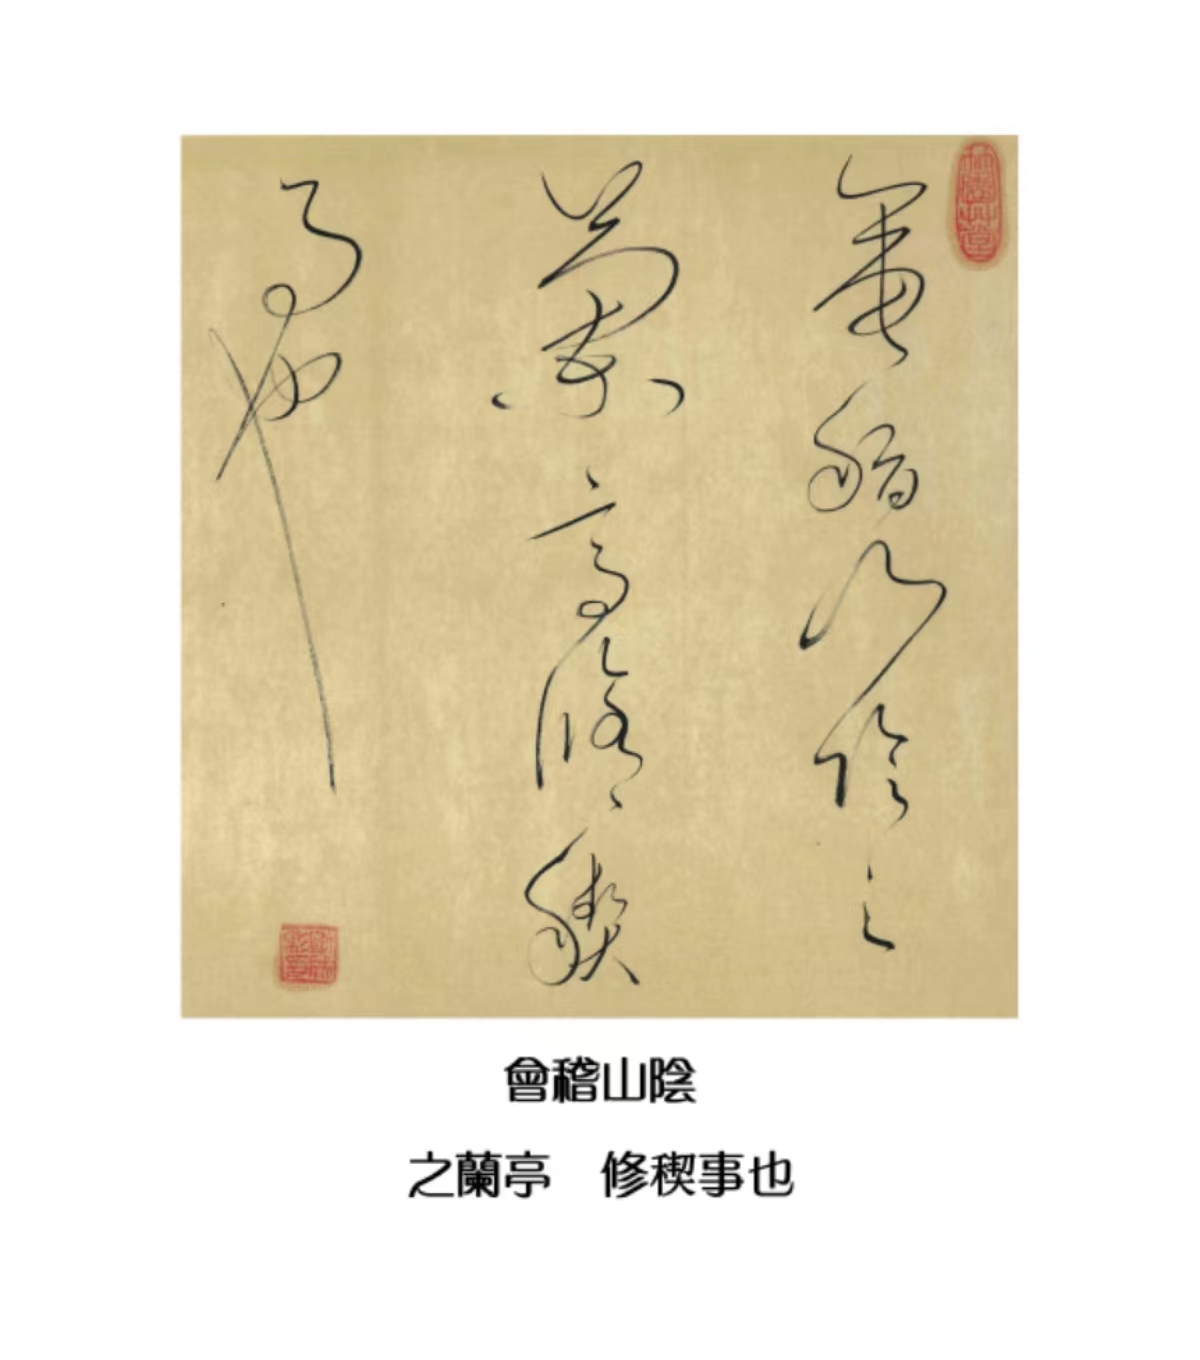 會稽山陰之
蘭亭脩稧
事也
會稽山陰
之蘭亭　修稧事也